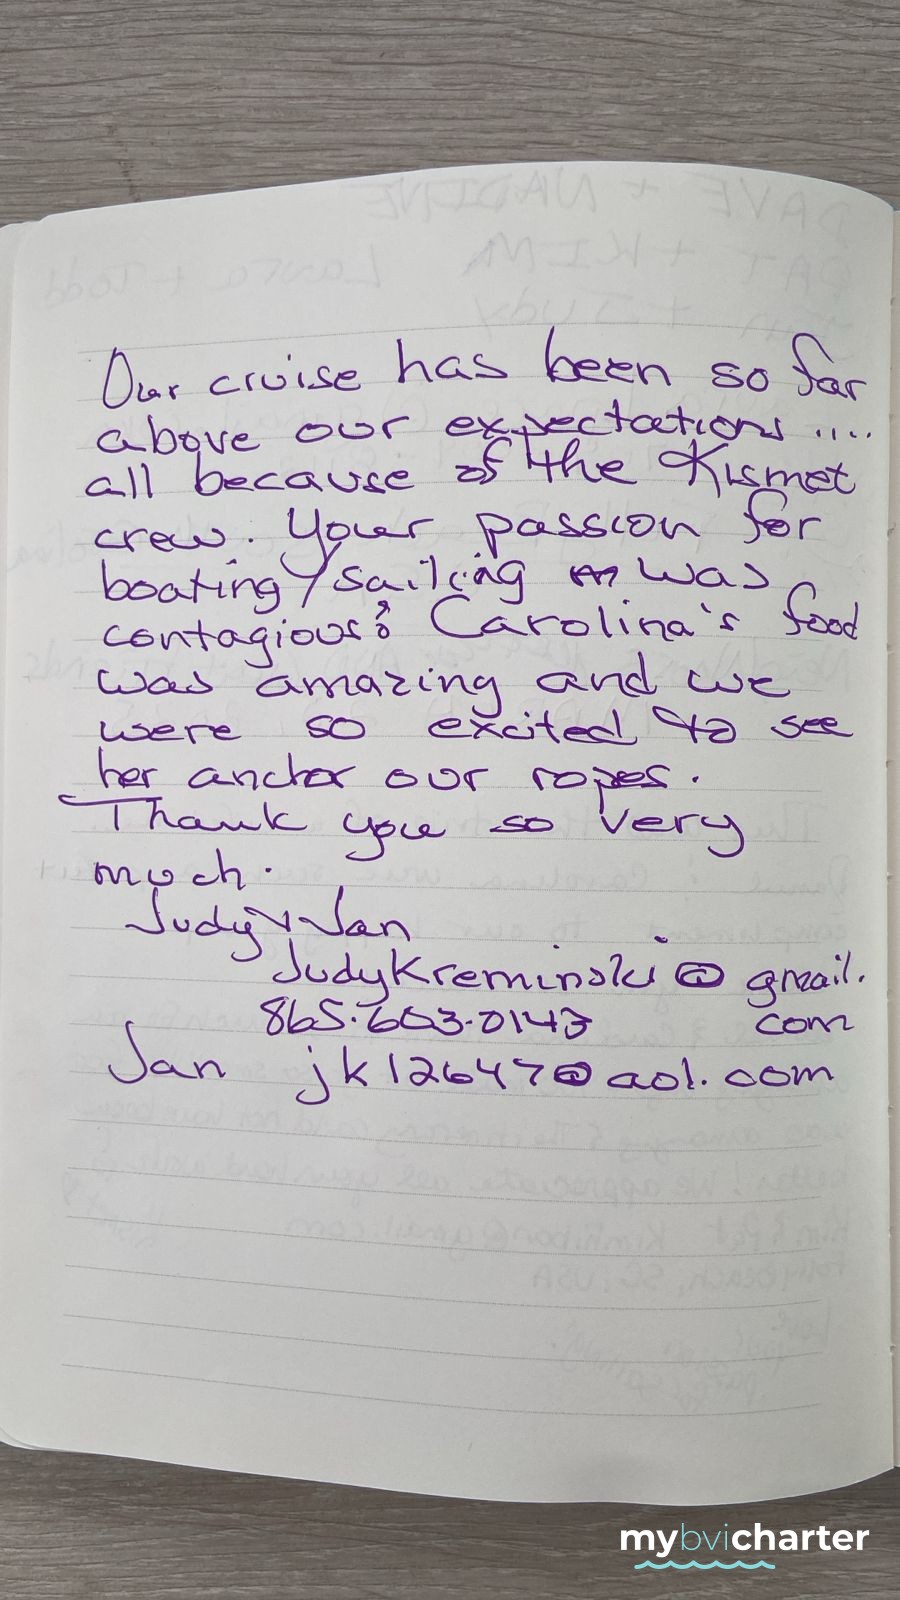 Our cruise has been so far
above our expectations ....
all because of the Kismet
crew. Your passion for
boating/sailing was
contagious & Carolina's food
was amazing and we
were so excited to see
her anchor our ropes.
Thank you so very
much.
Judy & Jan
JudyKreminski@gmail.
865.603.0143 com
Jan jk12647@aol.com
mybvicharter